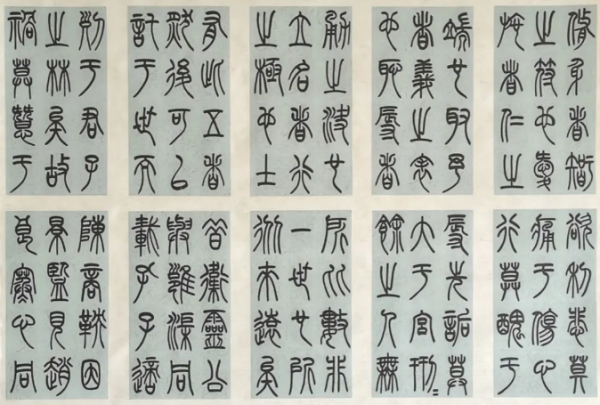 脩身者智
之符也愛
施者仁之
端也取予
者義之表
也恥辱者
勇之決也
立名者行
之極也士
有此五者
然後可以
託于世而
列于君子
之林矣故
禍莫憯于
欲利悲莫
痛于傷心
行莫醜于
辱先詬莫
大于宮刑=
餘之人無
所比數非
一世也所
從來遠矣
昔衛靈公
與雍渠同
載孔子適
陳商鞅因
景監見趙
良寒心同